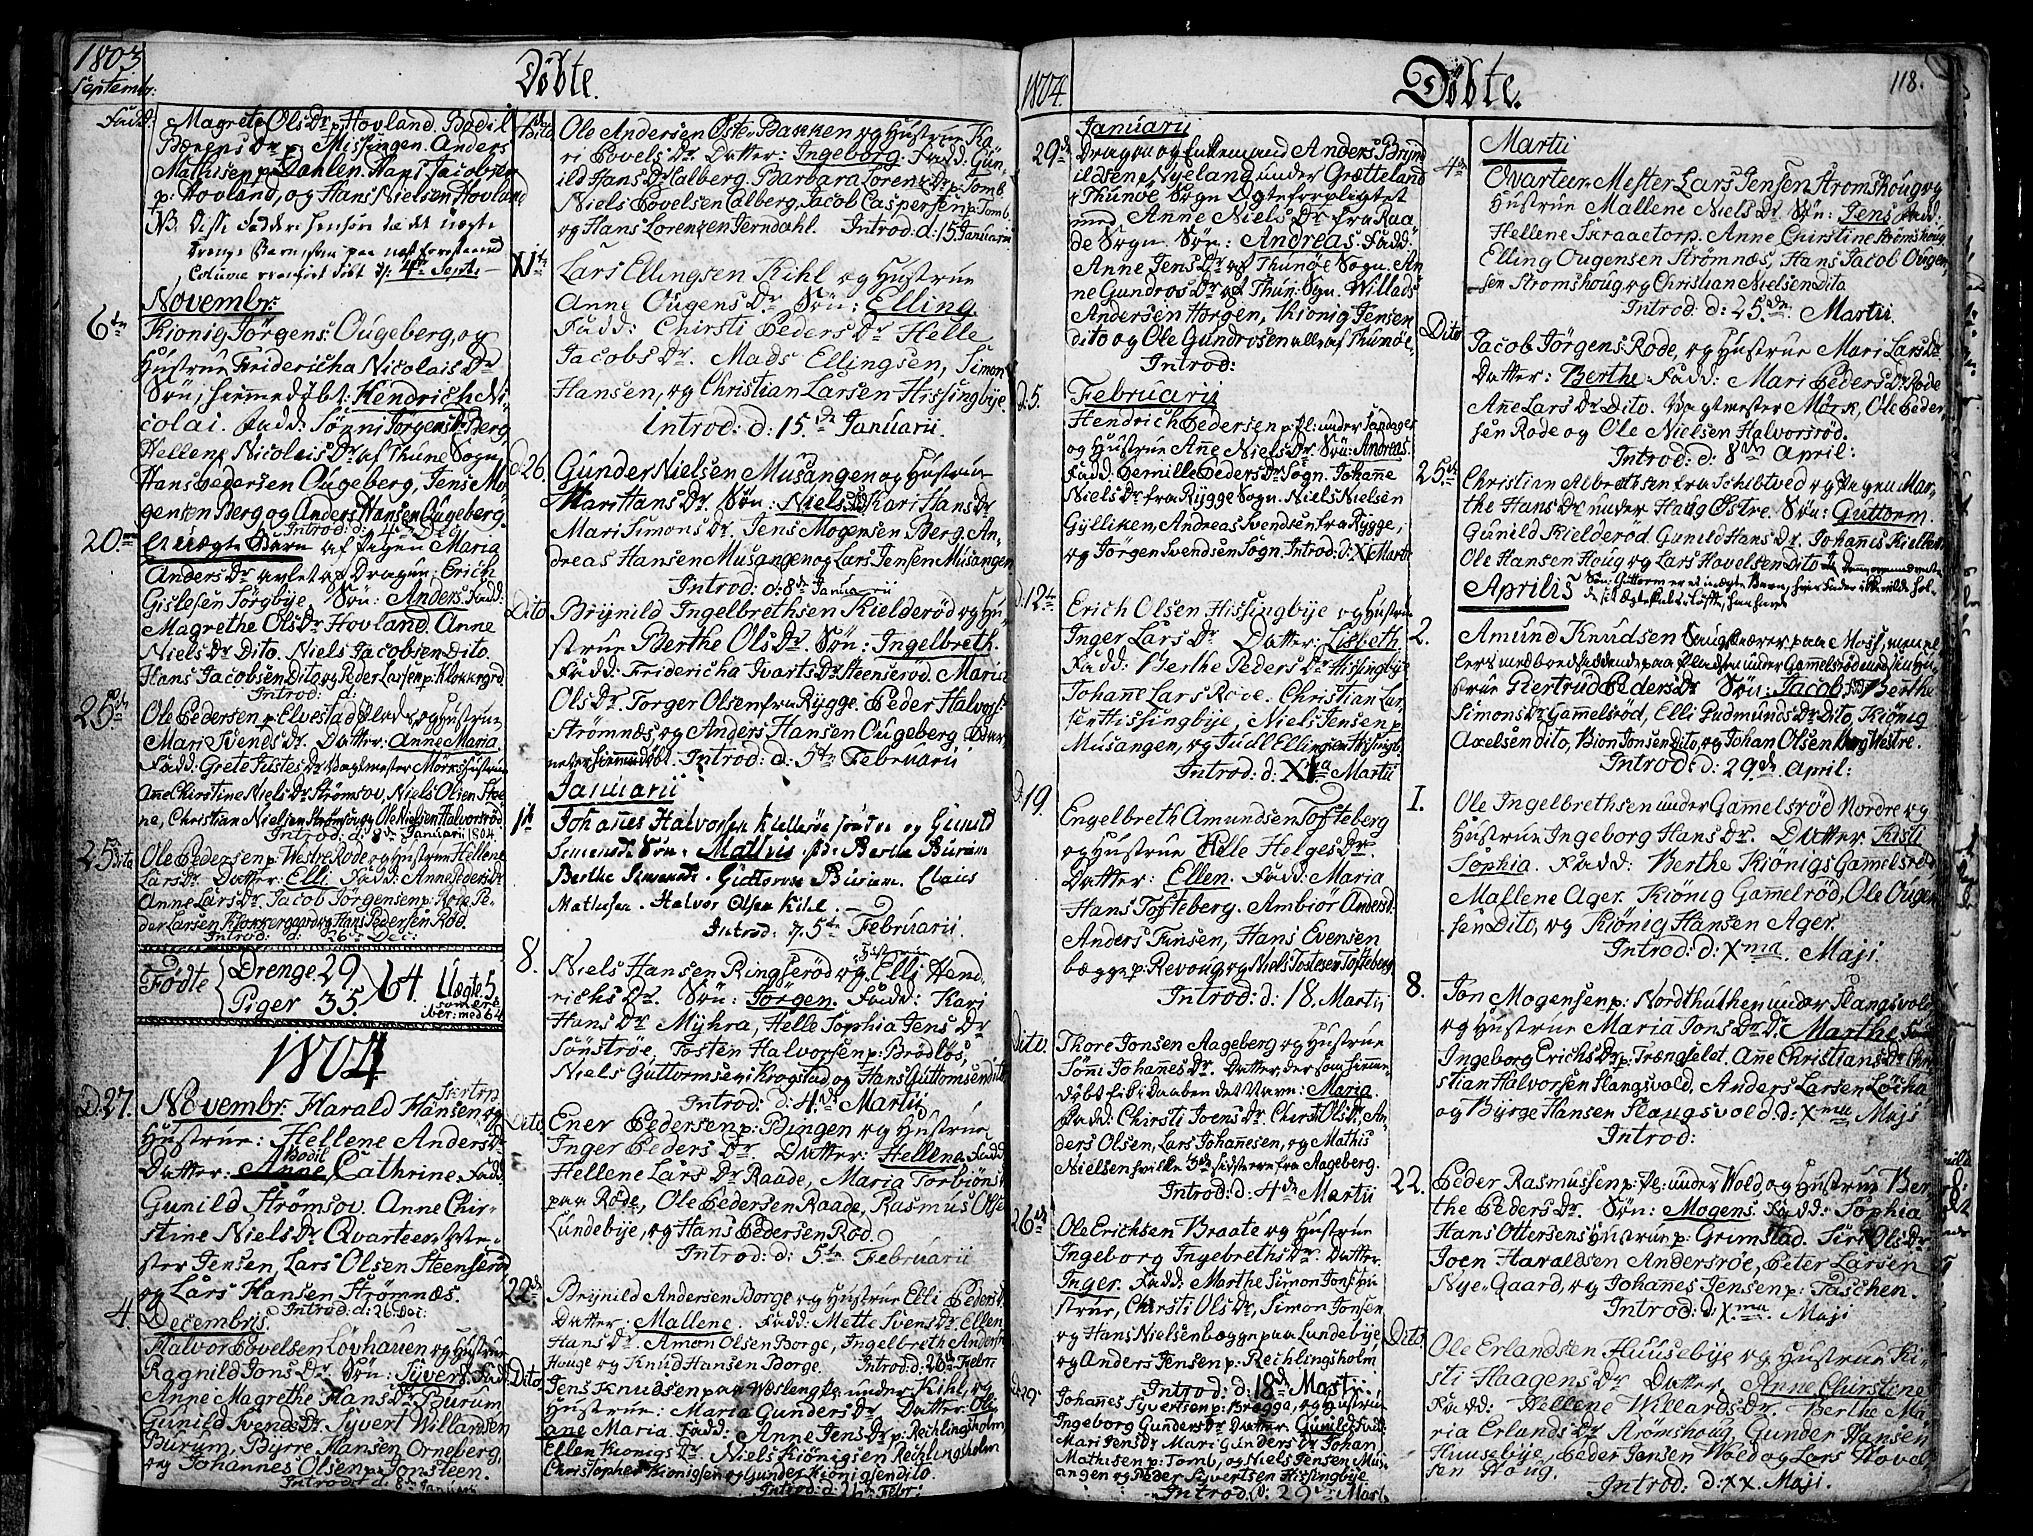 1803
Septembr:
Døbte.
Fadd: Magrete Ols Dr p: Hovland. Bodil
Børens Dr p: Missingen. Anders
Mathisen p: Dahlen. Hans Jacobsen
p: Hovland, og Hans Nielsen Hovland
Novembr:
6te
Kionig Jørgens: Ougeberg, og
Hustrue Fridericha Nicolais Dr
Søn, hiemmedøbt: Hendrich Ni-
colai. Fadd: Sønni Jørgens Dr Berg,
Hellene Nicolais Dr af Thune Sogn,
Hans Pedersen Ougeberg, Jens Mo-
gensen Berg og Anders Hansen Ougeberg.
Introd: d: 4de
20.
Et uægte Barn af Pigen Maria
Anders Dr avlet af Dragun: Erich
Gislesen Sørgbye. Søn: Anders. Fadd:
Magrethe Ols Dr Hovland. Anne
Niels Dr Dito. Niels Jacobsen Dito.
Hans Jacobsen Dito og Peder Larsen p: Klokkergrd.
Introd: d:
25de
Ole Pedersen p: Elvestad Plads og Hustrue
Mari Svenes Dr. Datter: Anne Maria
Fadd: Grete Justes Dr Vagtmester Mørks Hustrue
Anne Chirstine Niels Dr Strømsov. Niels Olsen Stee
ne, Christian Nielsen Strømsov og Ole Nielsen Halvorsrød
Introd: d: 8de Januarii 1804
25 Dito
Ole Pedersen p: Westre Rode og Hustrue Hellene
Lars Dr. Datter: Elli. Fadd: Anne Peders Dr
Anne Lars Dr. Jacob Jørgensen p: Rode. Pe-
der Larsen Klokkergaard og Hans Pedersen Rød.
Introd: d: 26de Dec:
Fødte Drenge 29
Piger 35. 64. Uægte 5
1804
D. 27.
Novembr: Harald Hansen og
Hustrue: Hellene Anders Dr
Datter: Anne Bodil Cathrine. Fadd:
Gunild Strømsov. Anne Chir-
stine Niels Dr. Qvarteer Me-
ster Jensen, Lars Olsen Steenserød
og Lars Hansen Strømnæs.
Introd: d: 26 Dec:
4
Decembris.
Halvor Povelsen Løvhauen og Hustrue
Ragnild Jons Dr. Søn: Syver. Fadd:
Anne Magrethe Hans Dr Burum
Gunild Svends Dr. Syvert Willandsen
Burum, Byrre Hansen Orneberg,
og Johannes Olsen p: Jonsteen.
Introd: d: 8de Januarii
Dito
Ole Andersen Østre Bakken og Hustrue Ka
ri Povels Dr. Datter: Ingeborg. Fadd: Gün-
ild Hans Dr Calberg. Barbara Lorens Dr p: Tomb.
Niels Povelsen Calberg, Jacob Caspersen p: Tomb.
og Hans Lorensen Jerndahl. Introd: d: 15. Januarii
XIte
Lars Ellingsen Kihl og Hustrue
Anne Ougens Dr. Søn: Elling.
Fadd: Chirsti Peders Dr Helle
Jacobs Dr. Mads Ellingsen, Simon
Hansen, og Christian Larsen Hissingbye.
Introd: d: 15. de Januarii.
d. 26.
Gunder Nielsen Musangen og Hustrue
Mari Hans Dr. Søn: Niels. Kari Hans Dr
Mari Simons Dr. Jens Mogensen Berg. An-
dreas Hansen Musangen og Lars Jensen Musangen
Introd: d: 8de Januarii
Dito
Brynild Ingelbrethsen Kielderød og Hu-
strue Berthe Ols Dr. Søn: Ingelbreth.
Fadd: Fridericha Ivarts Dr Steenserød. Maria
Ols Dr. Torger Olsen fra Rygge. Peder Halvors.
Strømnæs, og Anders Hansen Ougeberg
Introd: d: 5te Februarii
Januarii
1ste
Johannes Halvorsen Kiellerøe søndre og Gunild
Simensd: Søn: Mathis. fd: Berthe Burum
Berthe Simensd: Guttorm Burum. Claus
Mathisen. Halvor Olsen Kihl.
Introd: 5te Februarii.
8.
Niels Hansen Ringserød og Hustrue Elli Hend-
richs Dr. Søn: Jørgen. Fadd: Kari
Hans Dr Myhra, Helle Sophia Jens Dr
Sønstrøe, Tosten Halvorsen p: Brødløs,
Niels Guttormsen i Krogstad og Hans Guttomsen dito
Introd: d: 4. de Martii
Dito
Ener Pedersen p: Bingen og Hustrue
Inger Peders Dr. Datter: Hellene Fadd:
Hellene Lars Dr Raade, Maria Torbiøns
paa Rode, Ole Pedersen Raade, Rasmus Olse
Lundebye, og Hans Pedersen Rød.
Introd: d: 5te Februarii
22de
Brynild Andersen Borge og Hustrue Elli Peders D.
Datter: Mallene. Fadd: Mette Svens Dr. Ellen
Hans Dr. Amon Olsen Borge, Ingelbreth Anders
Houge og Knud Hansen Borge. Introd: d: 26de Febr:
Dito
Jens Knudsen paa Woslengke under Kihl, og
Hustrue: Maria Gunders Dr. Datter: Ole
ane Maria. Fadd: Anne Jens Dr p: Rechlingsholm
Ellen Kionigs Dr. Niels Kiönigsen Rechlingsholm
Christopher Kionigsen og Gunder Kiönigsen dito.
Introd: d: 26de Febr:
1804.
Døbte.
118.
Januarii
29de
Dragon og Enkemand Anders Brynd
ildsen Nyelang under Grætteland
i Thunøe Sogn Ægteforpligtet
med Anne Niels Dr fra Raa
de Sogn. Søn: Andreas. Fadd:
Anne Jens Dr af Thunøe Sogn. An
ne Gundros Dr af Thun: Sogn. Willads
Andersen Horgen, Kionig Jensen
dito og Ole Gundrosen alle af Thunøe.
Introd:
d. 5.
Februarii
Hendrich Pedersen p: Pl: under Sandager
og Hustrue Anne Niels Dr. Søn: Andreas.
Fadd: Pernille Peders Dr Sogn. Johanne
Niels Dr fra Rygge Sogn. Niels Nielsen
Gylliken, Andreas Svendsen fra Rygge,
og Jørgen Svendsen Sogn. Introd: d: XI Martii
d. 12te
Erich Olsen Hissingbye og Hustrue
Inger Lars Dr Datter: Lisbeth.
Fadd: Berthe Peders Dr Hissingbye
Johanne Lars Rode. Christian Lar-
sen Hissingbye, Niels Jensen p
Musangen, og Judl Ellingsen Hissingb.
Introd: d: XIma Martii
d. 19.
Engelbreth Amundsen Tofteberg
og Hustrue Helle Helges Dr.
Datter: Ellen. Fadd: Maria
Hans Tofteberg. Ambiør Andersd.
Anders Tunsen, Hans Evensen
begge p: Revoug og Niels Tostesen Tofteberg.
Introd: d: 18. Martii
Dito.
Thore Jonsen Aageberg og Hustrue
Søni Johannes Dr. Datter, der som hiemme
døbt fik i Daaben det Navn: Maria
Fadd: Chirsti Joens Dr. Chirsti Ols Dr, An-
ders Olsen, Lars Johannesen, og Mathis
Nielsen hvilke 3de sidstere fra Aageberg.
Introd: d: 4de Martii
26de
Ole Erichsen Braate og Hustrue
Ingeborg Ingebreths Dr. Datter:
Inger. Fadd: Marthe Simon Jons hu
strue, Chirsti Ols Dr, Simon Jonsen
og Hans Nielsen begge paa Lundebye,
og Anders Jensen p: Rechlingsholm
Introd: d: 18de Martii
d. 29.
Johannes Syvertsen p: Brægge, og Hustrue
Ingeborg Gunders Dr. Datter: Gunild. Fadd:
Mari Jens Dr Mari Gunders Dr Johan
Mathisen p: Tomb, og Niels Jensen Mus-
angen og Peder Syvertsen Hissingbye
Introd. d: 29de Mart.
Martii
4de
Qvarteer Mester Lars Jensen Strømshoug og
Hustrue Mallene Niels Dr. Søn: Jens. Fadd:
Hellene Skraatorp. Anne Chirstine Strømshoug
Elling Ougensen Strømnæs, Hans Jacob Ougen-
sen Stromshoug og Christian Nielsen Dito
Introd: d: 25. de: Martii.
Dito
Jacob Jörgens: Rode, og Hustrue Mari Lars Dr
Datter: Berthe Fadd: Mari Peders Dr Rode
Anne Lars Dr Dito. Vagtmester Mørk, Ole Peder-
sen Rode og Ole Nielsen Halvorsrød.
Introd: d: 8de April:
25de
Christian Albrethsen fra Schibtved og Pigen Mar-
the Hans Dr under Haug Østre. Søn: Guttorm.
Gunild Kielderød. Gunild Hans Dr. Johannes Kieller
Ole Hansen Houg og Lars Hovelsen Dito
Aprilis
2.
Amund Knudsen Saugskiærer paa Moss,
Hustrue Giertrud Peders Dr Søn: Jacob. Fadd: Berthe
Simons Dr Gammelsrød, Elli Gudmunds Dr Dito, Kiönig
Axelsen dito, Biön Jonsen dito, og Johan Olsen Berg Westre.
Introd: d: 29de April:
I.
Ole Ingelbrethsen under Gamelsrød Nordre og
Hustrue Ingeborg Hans Dr. Datter: Kisti
Sophia. Fadd: Berthe Kionigs Gamelsrød
Mallene Ager. Kiönig Gamelrød, Ole Ougen
sen Dito, og Kiönig Hansen Ager.
Introd: d: Xma. Maji.
8.
Jon Mogensen p: Nordthuthen under Slangsvold
og Hustrue Maria Jons Dr. Dr Marthe. Fadd:
Ingeborg Erichs Dr p: Trængselet. Ane Christians Dr. Chri-
stian Halvorsen Slangsvold, Anders Larsen Löcka
og Byrge Hansen Slaugsvold. d: Xma Maji
Introd:
22.
Peder Rasmussen p: Pl: under Wold, og Hustrue Ber
the Peders Dr. Søn: Mogens. Fadd: Sophia
Hans Ottersens Hustrue p: Grimstad. Siri Ols Dr
Joen Haraldsen Andersrøe, Peter Larsen
Nye-Gaard, og Johanes Jensen p: Taschen.
Introd: d: Xma. Maji
Dito.
Ole Erlandsen Huusebye og Hustrue Ki-
sti Haagens Dr Datter: Anne Chirstine
Fadd: Hellene Willards Dr. Berthe Ma
ria Erlands Dr Strømshoug. Gunder Hansen
Huusebye, Peder Jensen Wold og Lars Hovel
sen Houg.
Introd: d: XX. Maji.